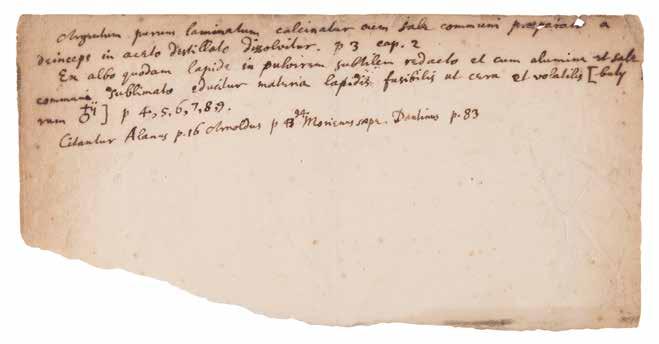 Argentum purum laminatum calcinatur cum sale communi præparato a
deinceps in aceto destillato dissolvitur. p 3 cap. 2
Ex albo quodam lapide in pulverem subtilem redacto et cum alumine et sale
communi sublimato educitur materia lapidis fusibilis ut cera et volatilis [buty
rum ♁ii] p 4, 5, 6, 7, 8, 9.
Citantur Alanus p. 16 Arnoldus p Morienus sæpe. Dastinus p. 83